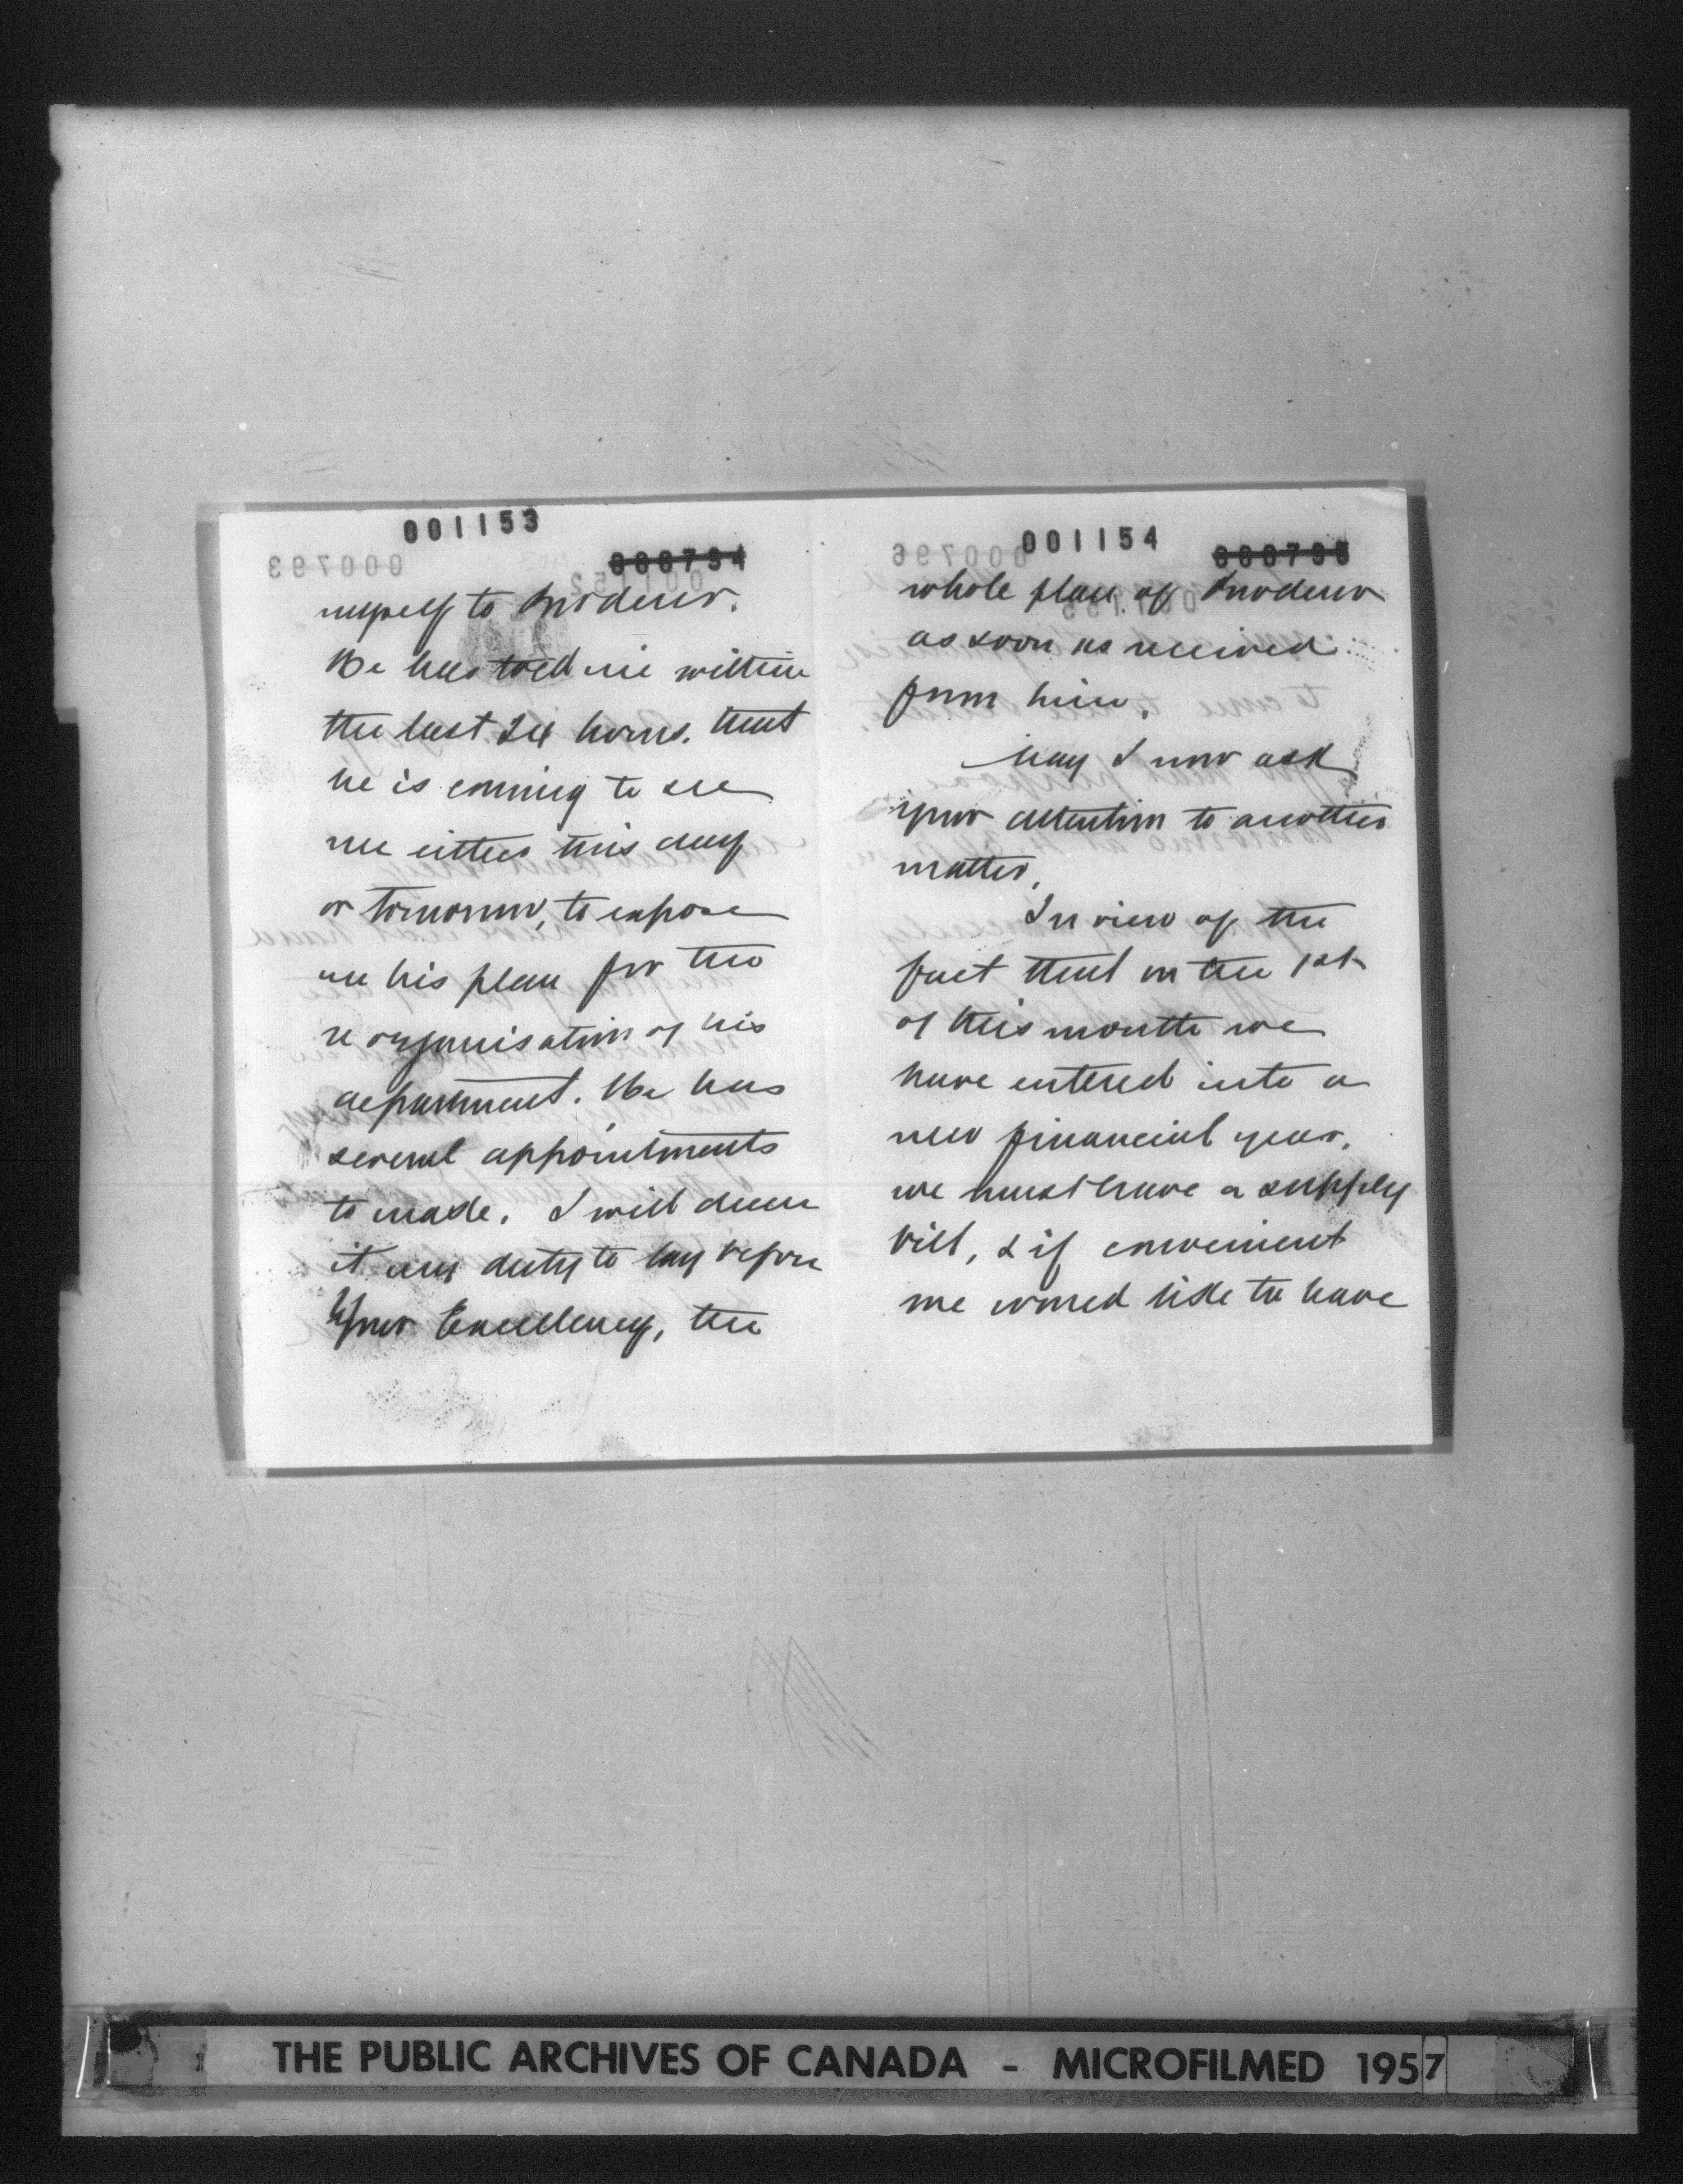 001153
000794
myself to Brodeur.
He has told me within
the last 24 hours. that
he is coming to see
me either this day
or tomorrow, to expose
me his plan for the
reorganisation of his
department. He has
several appointments
to made. I will deem
it my duty to lay before
Your Excellency, the
001154
000795
whole plan of Brodeur
as soon as received
from him.
May I now ask
your attention to another
matter.
In view of the
fact that on the 1st
of this month we
have entered into a
new financial year,
we must have a supply
bill, & if convenient
we would like to have
THE PUBLIC ARCHIVES OF CANADA - MICROFILMED 1957